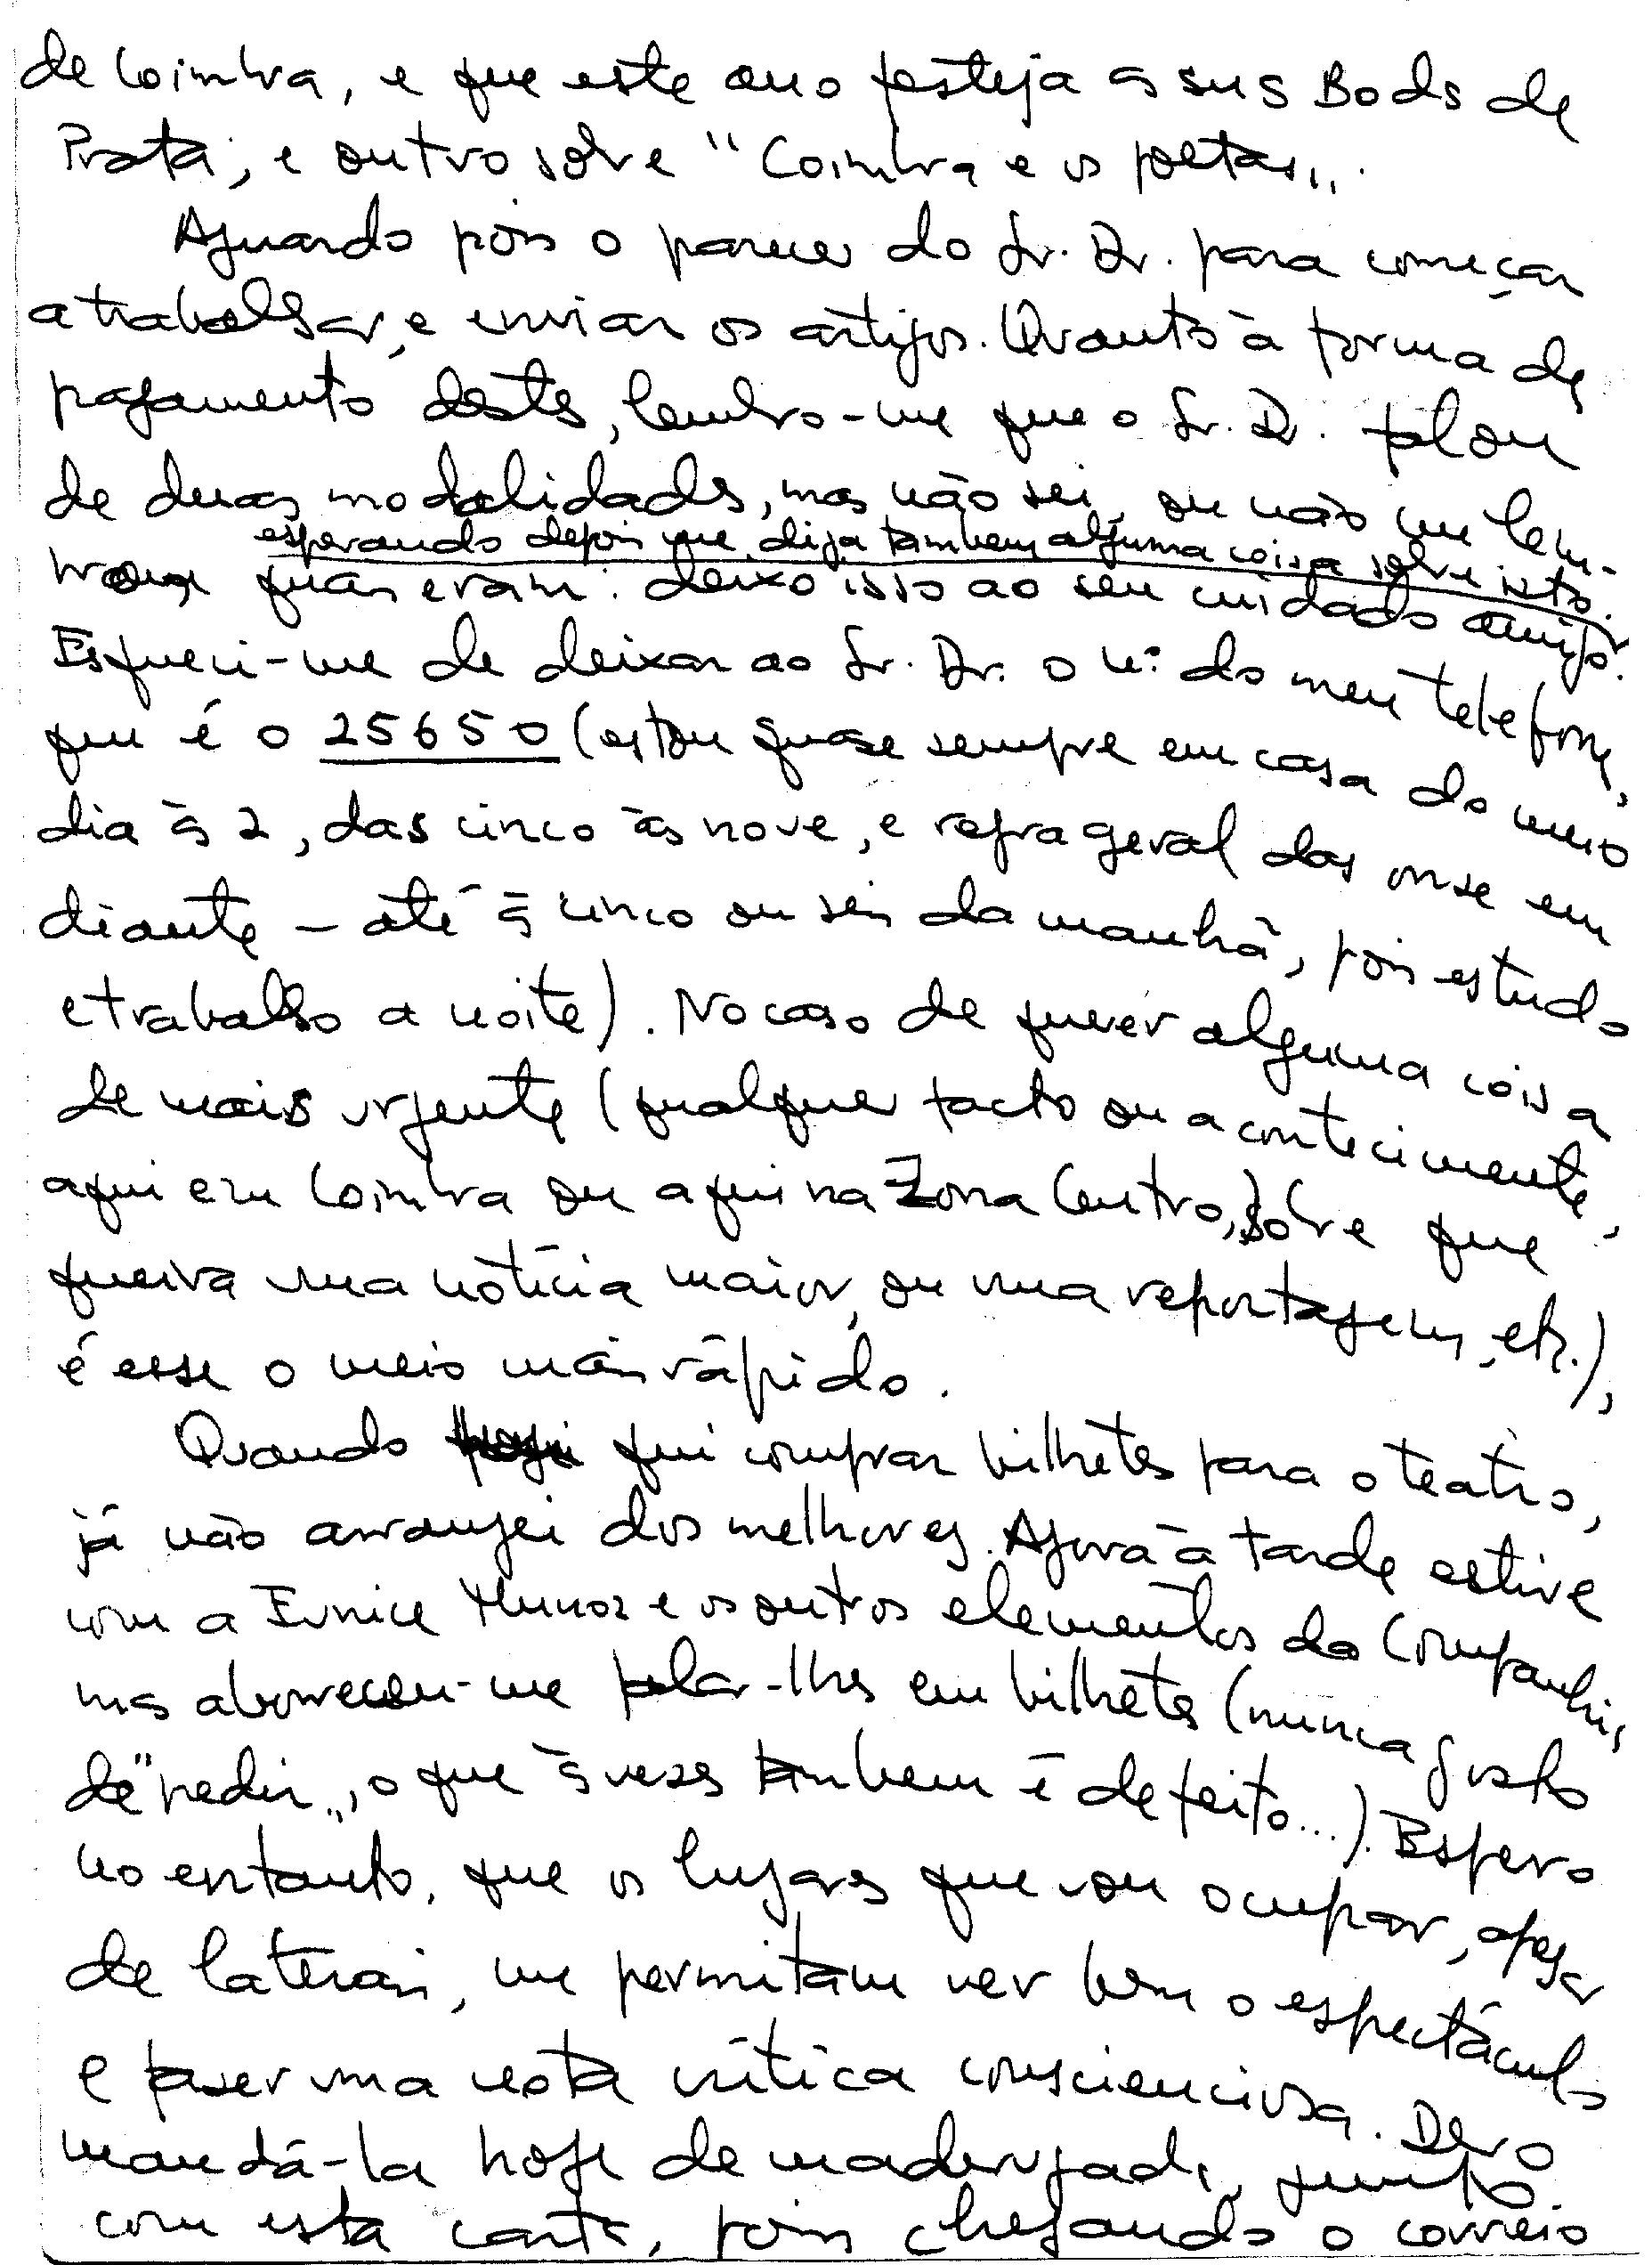 de Coimbra, e que este ano festeja as suas Bodas de
Prata, e outro sôbre "Coimbra e os poetas".
Aguardo pois o parecer do Sr. Dr. para começar
a trabalhar, e enviar os artigos. Quanto à forma de
pagamento destes, lembro-me que o Sr. Dr. falou
de duas modalidades, mas não sei, ou não me lem-
esperando depois que diga também alguma coisa sobre isto.
quais eram: deixo isso ao seu cuidado amigo.
Esqueci-me de deixar ao Sr. Dr. o nº do meu telefone,
que é o 25650 (estou quase sempre em casa do meio
dia às 2, das cinco às nove, e regra geral das onse em
diante - até às cinco ou seis da manhã, pois estudo
e trabalho a noite). No caso de querer alguma coisa
de mais urgente (qualquer facto ou acontecimento,
aqui em Coimbra ou aqui na Zona Centro, sôbre que
queira uma notícia maior, ou uma reportagem, etc.),
é esse o meio mais rápido.
Quando fui comprar bilhetes para o teatro,
já não arranjei dos melhores. Agora à tarde estive
com a Eunice Munoz e os outros elementos da Companhia,
mas aborreceu-me falar-lhes em bilhetes (nunca gosto
de "pedir", o que às vezes também é defeito...). Espero
no entanto, que os lugares que vou ocupar, apesar
de laterais, me permitam ver bem o espectáculo
e fazer uma nota crítica conscienciosa. Devo
mandá-la hoje de madrugada, junto
com esta carta, pois chegando o correio